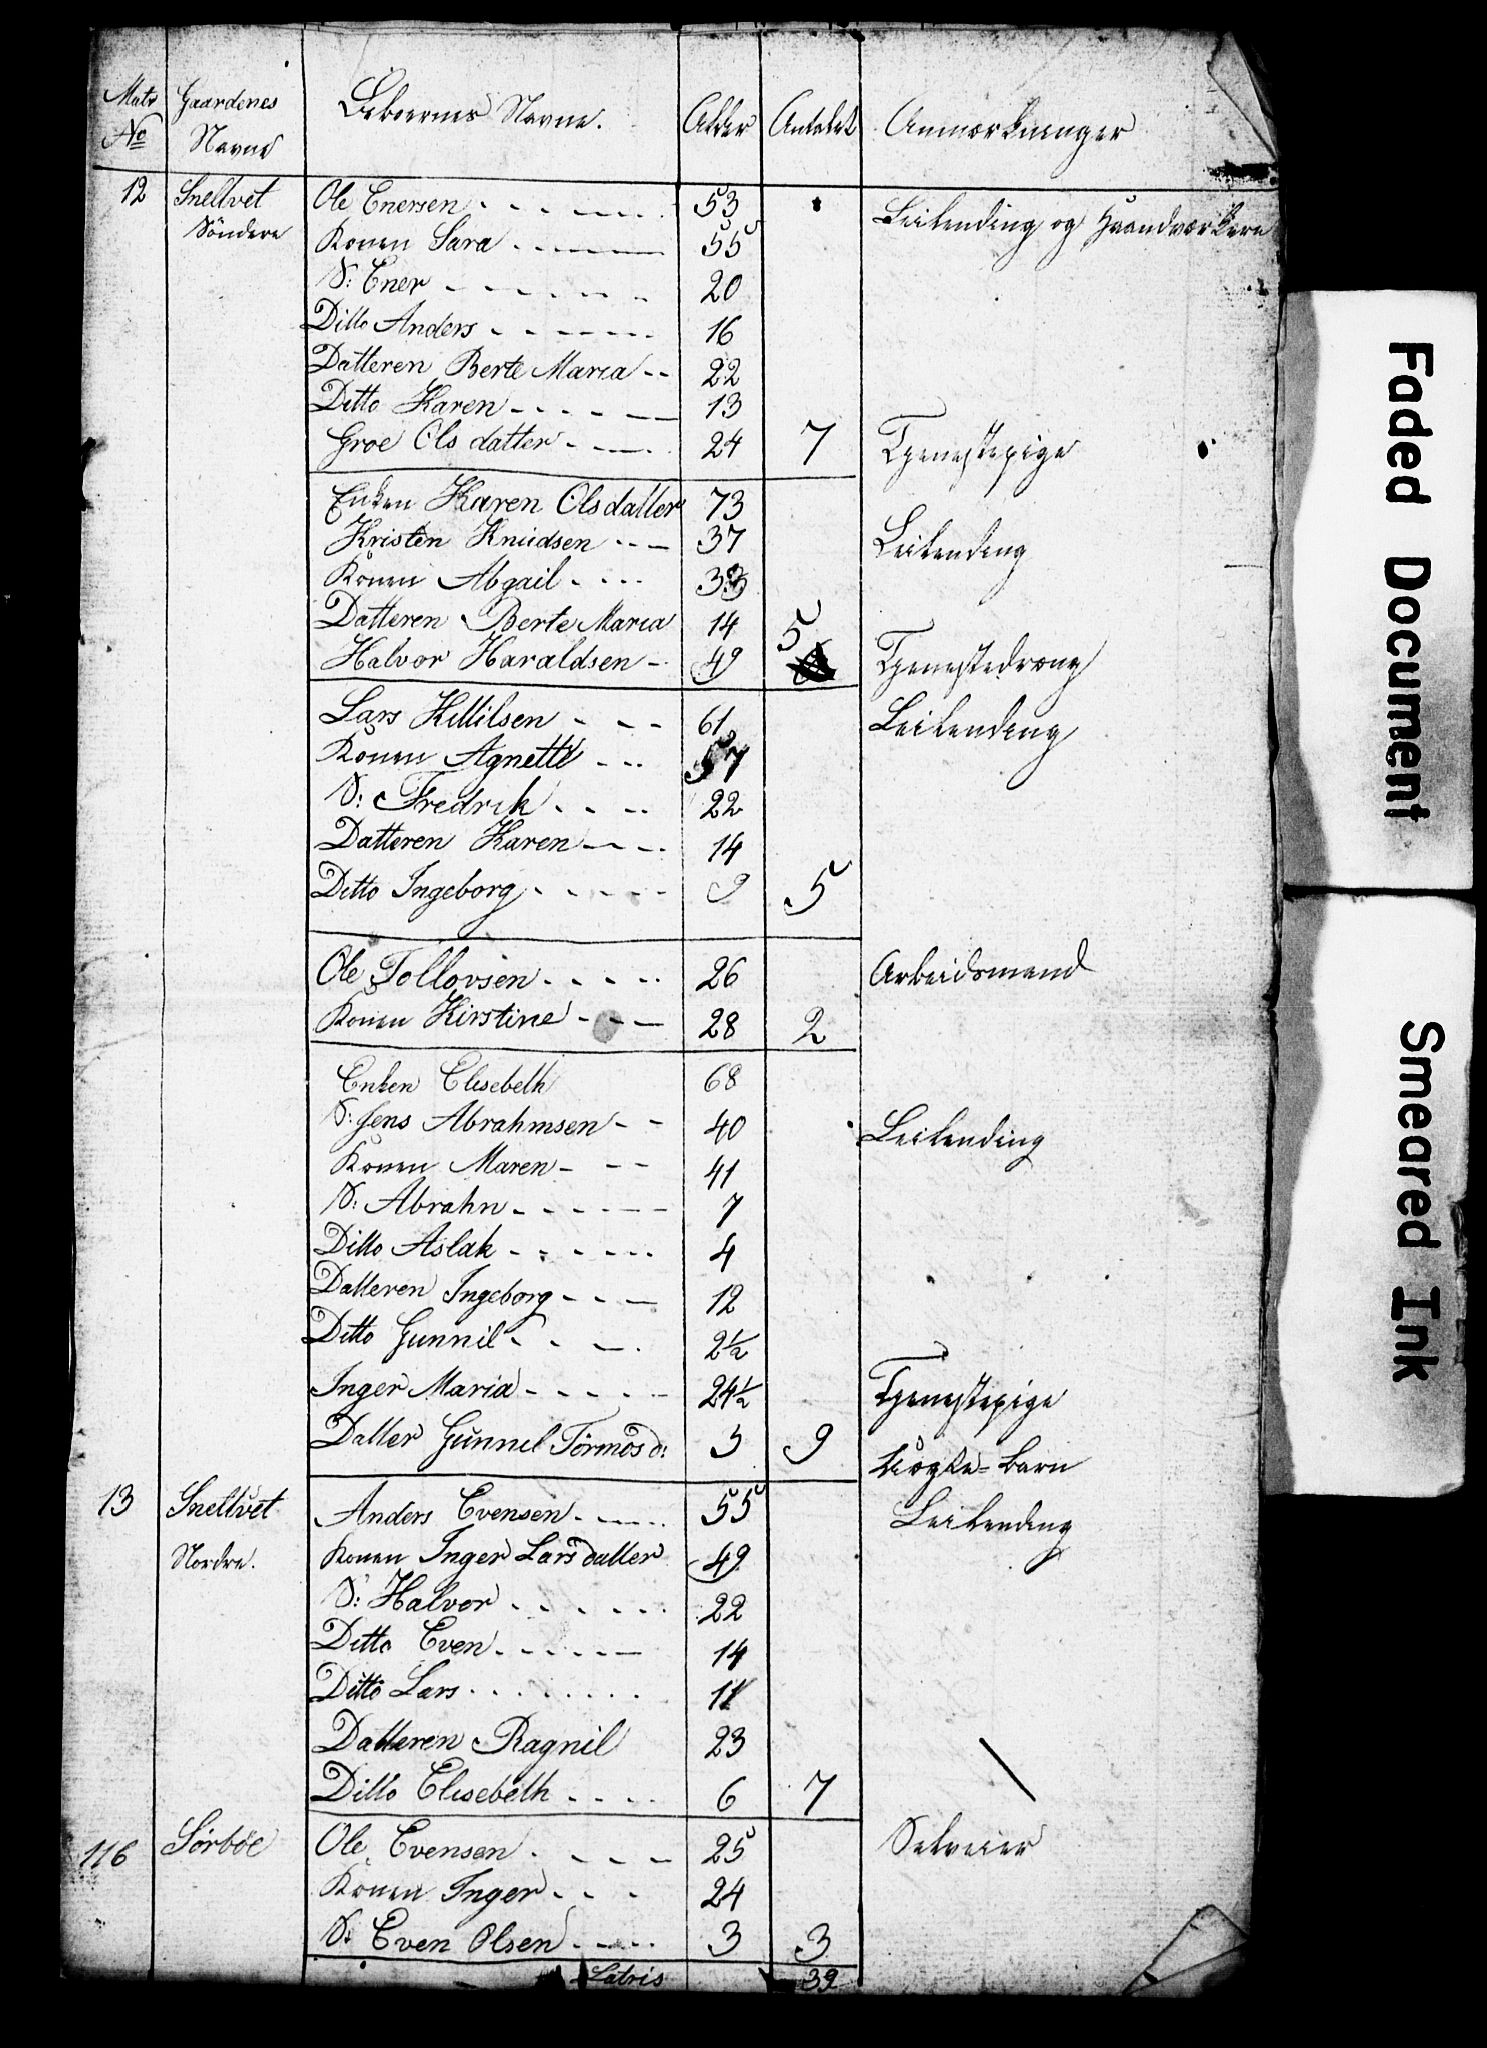 Matr No Gaardenes Navne Beboernes Navne. Alder Antalet Anmærkninger
12 Snellvet Söndere Ole Enersen 53 Leilending og Haandværkere
Konen Sara 55
S: Ener 20
Ditto Anders 16
Datteren Berte Maria 22
Ditto Karen 13
Groe Olsdatter 24 7 Tjenestepige
Enken Karen Olsdatter 73
Kristen Knudsen 37 Leilending
Konen Abgail 33
Datteren Berte Maria 14
Halvor Haraldsen 49 5 Tjenestedræng
Lars Killilsen 61 Leilending
Konen Agnette 57
S: Fredrik 22
Datteren Karen 14
Ditto Ingeborg 9 5
Ole Tollovsen 26 Arbeidsmand
Konen Kirstine 28 2
Enken Elisebeth 68
S: Jens Abrahmsen 40 Leilending
Konen Maren 41
S: Abrahn 7
Ditto Aslak 4
Datteren Ingeborg 12
Ditto Gunnil 2½
Inger Maria 24½ Tjenestepige
Datter Gunnil Tormos d: 3 9 Barn
13 Snellvet Nordre. Anders Evensen 55 Leilending
Konen Inger Larsdatter 49
S: Halvor 22
Ditto Even 14
Ditto Lars 11
Datteren Ragnil 23
Ditto Elisebeth 6 7
116 Sörböe Ole Evensen 25 Selveier
Konen Inger 24
S: Even Olsen 3 3
Latris 39
Faded Document
Smeared Ink